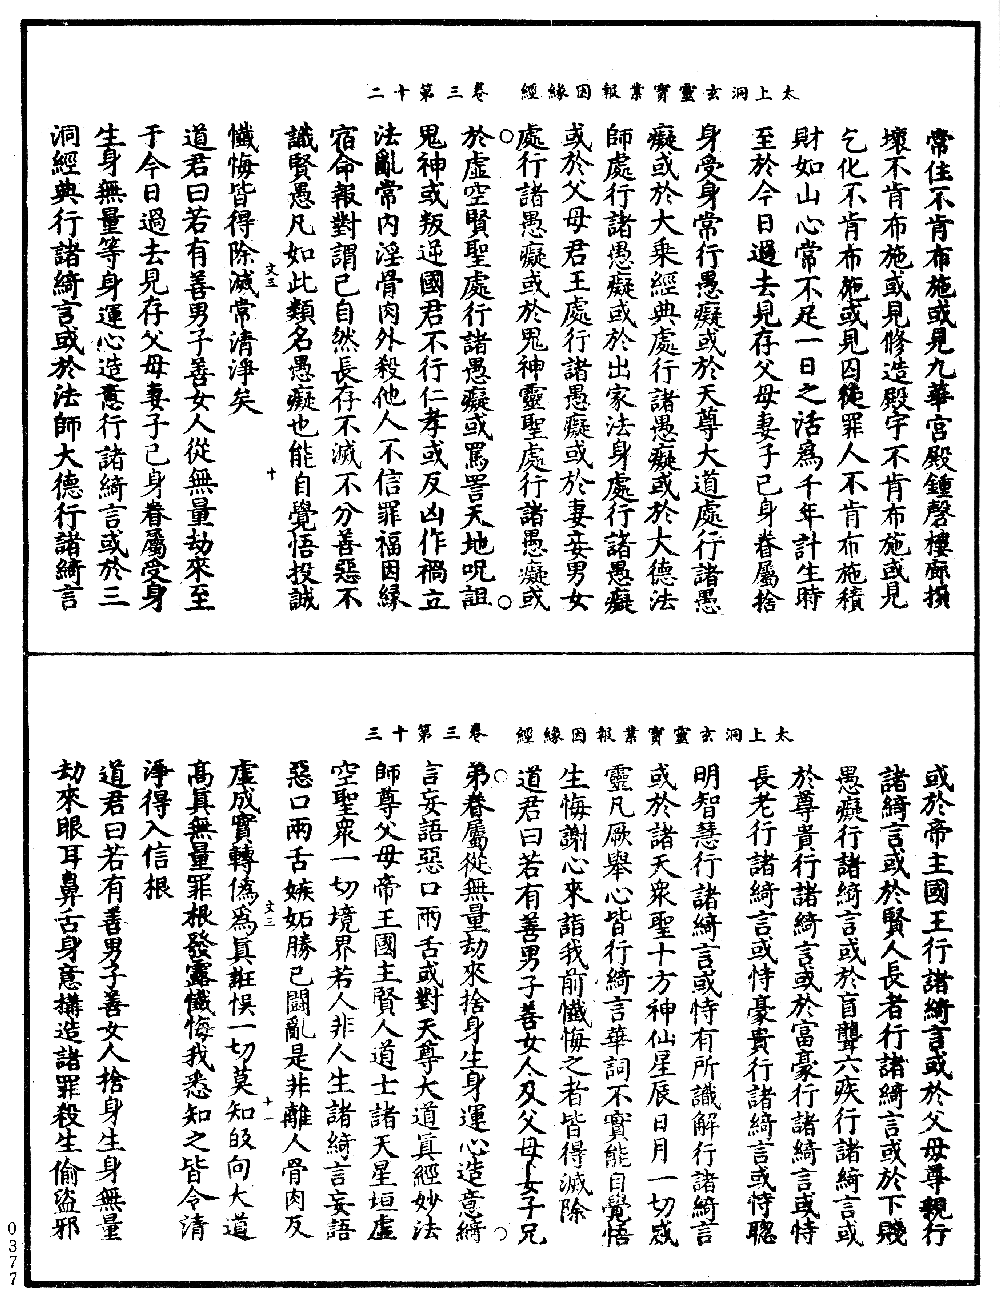 太上洞玄靈寶業報因緣經　卷三第十二
常住不肯布施或見九華宮殿鍾磬樓廊損
壞不肯布施或見修造殿宇不肯布施或見
乞化不肯布施或見囚徒罪人不肯布施積
財如山心常不足一日之活爲千年計生時
至於今日過去見存父母妻子己身眷屬捨
身受身常行愚癡或於天尊大道處行諸愚
癡或於大乘經典處行諸愚癡或於大德法
師處行諸愚癡或於出家法身處行諸愚癡
或於父母君王處行諸愚癡或於妻妾男女
處行諸愚癡或於鬼神靈聖處行諸愚癡或
於虛空賢聖處行諸愚癡或罵詈天地呪詛
鬼神或叛逆國君不行仁孝或反凶作禍立
法亂常內淫骨肉外殺他人不信罪福因緣
宿命報對謂己自然長存不滅不分善惡不
識賢愚凡如此類名愚癡也能自覺悟投誠
文三　十
懺悔皆得除滅常清淨矣
道君曰若有善男子善女人從無量劫來至
于今日過去見存父母妻子己身眷屬受身
生身無量等身運心造意行諸綺言或於三
洞經典行諸綺言或於法師大德行諸綺言
太上洞玄靈寶業報因緣經　卷三第十三
或於帝主國王行諸綺言或於父母尊親行
諸綺言或於賢人長者行諸綺言或於下賤
愚癡行諸綺言或於盲聾六疾行諸綺言或
於尊貴行諸綺言或於富豪行諸綺言或恃
長老行諸綺言或恃豪貴行諸綺言或恃聰
明智慧行諸綺言或恃有所識解行諸綺言
或於諸天衆聖十方神仙星辰日月一切威
靈凡厥舉心皆行綺言華詞不實能自覺悟
生悔謝心來詣我前懺悔之者皆得滅除
道君曰若有善男子善女人及父母女子兄
弟眷屬從無量劫來捨身生身運心造意綺
言妄語惡口兩舌或對天尊大道真經妙法
師尊父母帝王國主賢人道士諸天星垣虛
空聖衆一切境界若人非人生諸綺言妄語
惡口兩舌嫉妬勝己鬭亂是非離人骨肉反
文三　十一
虛成實轉僞爲真誑悮一切莫知皈向大道
高真無量罪根發露懺悔我悉知之皆令清
淨得入信根
道君曰若有善男子善女人捨身生身無量
劫來眼耳鼻舌身意構造諸罪殺生偷盜邪
0377